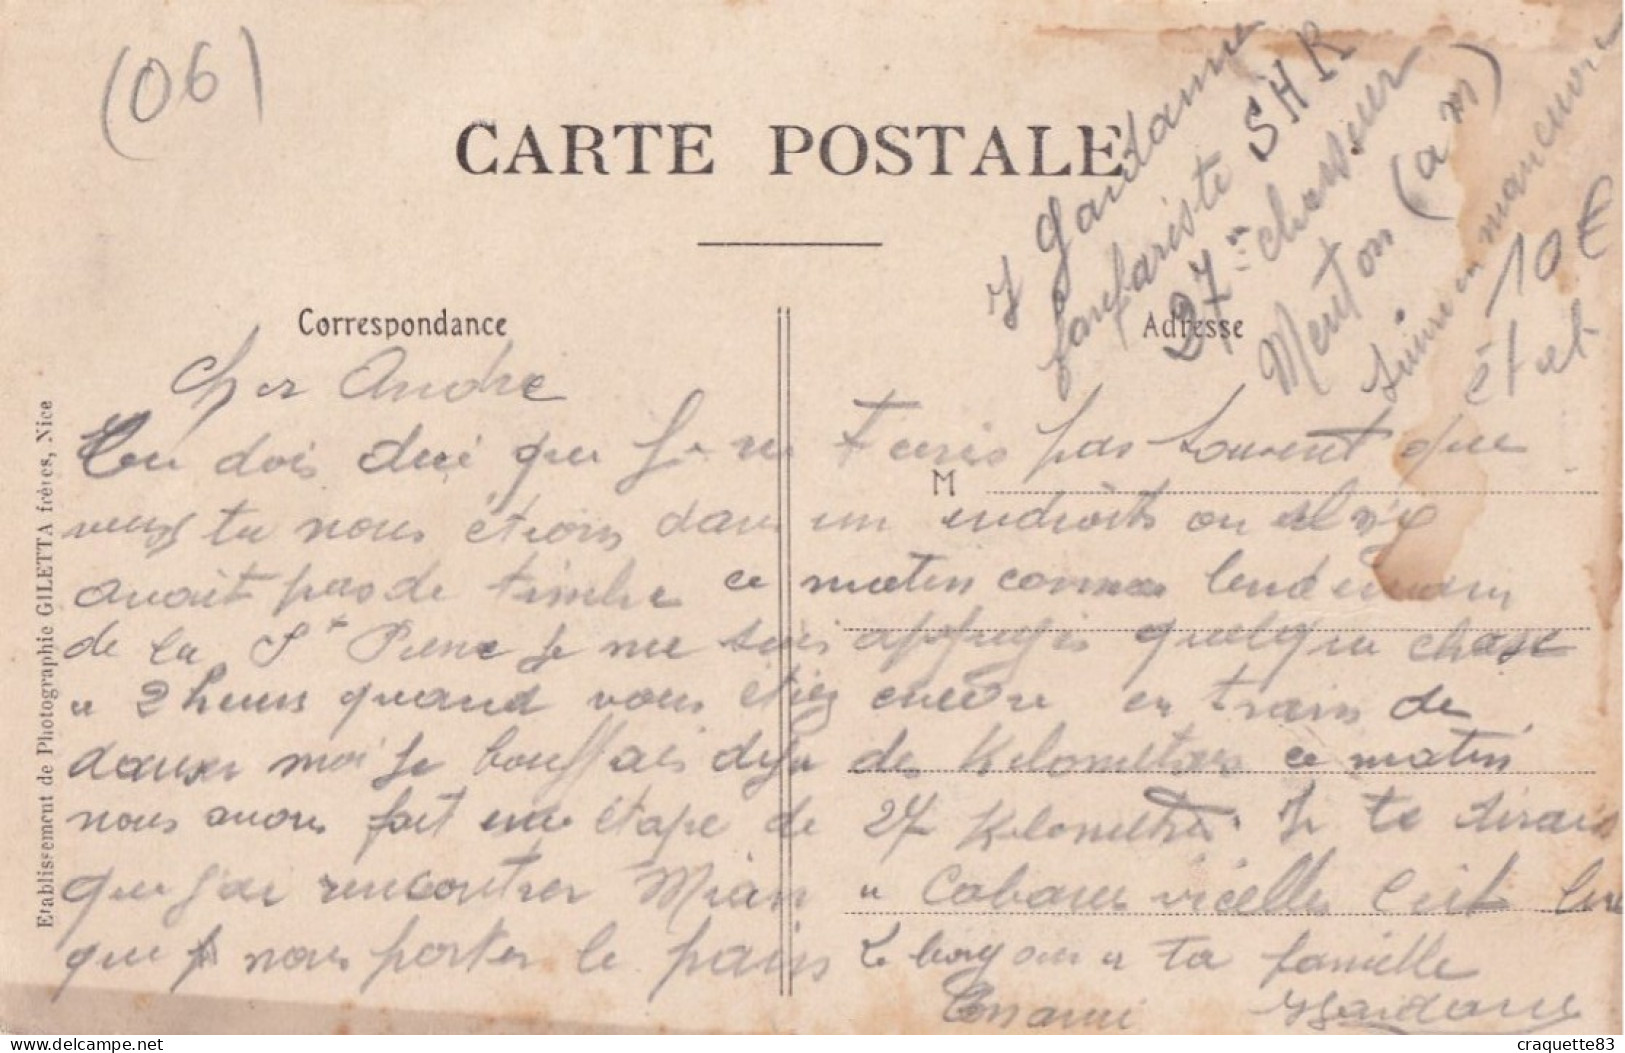 (06)
CARTE POSTALE
Gardanne
fanfariste SHR
27me chasseur
Menton (a m)
Suivre en manoeuvre
10€
état
Correspondance
Adresse
Cher Andre
Tu dois dire que Je ne t'ecris pas souvent que
M
veux tu nous étions dans un endroits ou il n'y
avait pas de timbre ce matin comme lendemain
de la St Pierre je me suis appuyés quelque chose
a 2 heures quand vous étiez encore en train de
danser moi je bouffais deja des Kilometres ce matin
nous avons fait une étape de 27 Kilometres. Je te dirais
que j'ai rencontrer a Cabanes vieilles c'est lui
que nous porter le pain Le bonjour a ta famille
Ton ami Gardanne
Etablissement de Photographie GILETTA frères, Nice
craquette83